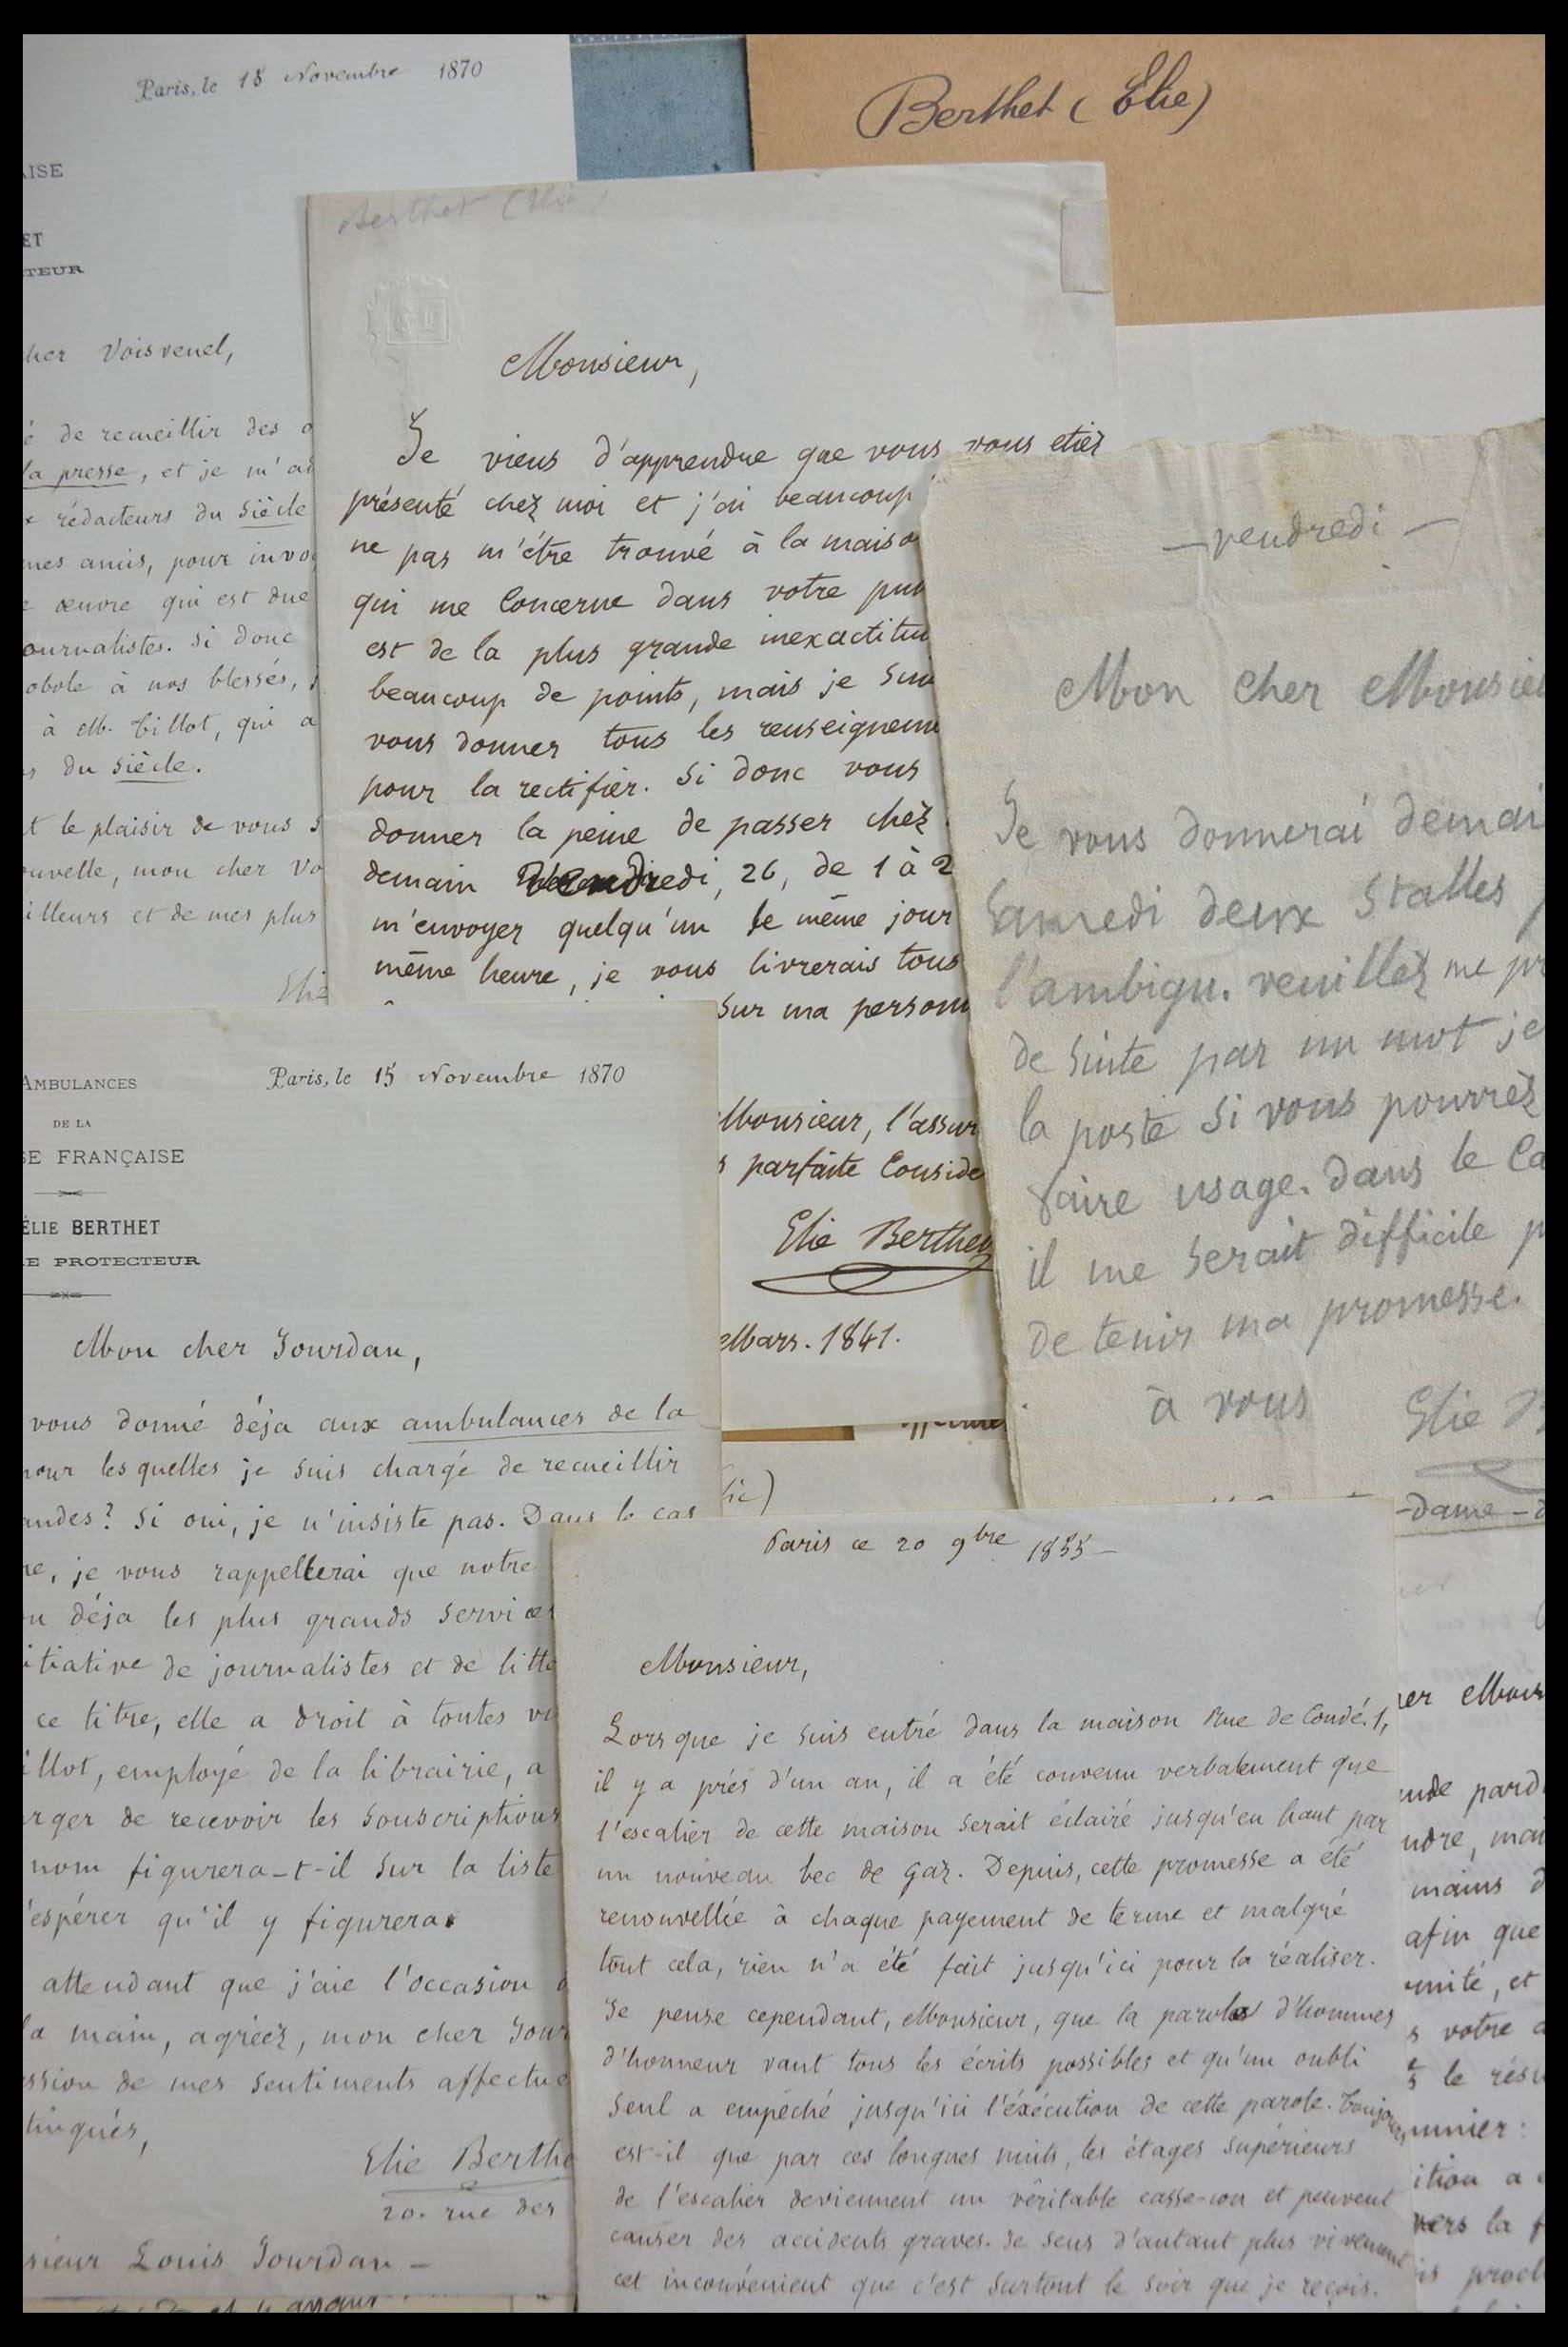 Paris, le 15 Novembre 1870
AISE
ET
TEUR
her Voisvenel,
é de recueillir des
la presse, et je m'ad
x rédacteurs du Siècle
mes amis, pour invo
e œuvre qui est due
ournalistes. Si donc
obole à nos blessés,
à M. Tillot, qui a
s du Siècle.
t le plaisir de vous s
ouvelle, mon cher Vo
illeurs et de mes plus
Elie
Berthet (Elie)
Berthet (Elie)
Monsieur,
Je viens d'apprendre que vous vous etiez
présenté chez moi et j'ai beaucoup
ne pas m'être trouvé à la maiso
qui me concerne dans votre pu
est de la plus grande inexactitu
beaucoup de points, mais je sui
vous donner tous les renseigneme
pour la rectifier. Si donc vous
donner la peine de passer chez
demain vendredi, 26, de 1 à 2
m'envoyer quelqu'un le même jour
même heure, je vous livrerais tous
sur ma person
Monsieur, l'assur
s parfaite Conside
Elie Berthet
Mars. 1841.
— vendredi —
Mon cher Monsieu
Je vous donnerai demai
Samedi deux Stalles
l'ambigu. veuillez me pr
de suite par un mot je
la poste si vous pourrez
faire usage. dans le Ca
il me serait difficile p
de tenir ma promesse.
à vous
Elie B
-dame-d
AMBULANCES
DE LA
SE FRANÇAISE
ÉLIE BERTHET
E PROTECTEUR
Paris, le 15 Novembre 1870
Mon cher Jourdan,
vous donné déja aux ambulances de la
pour les quelles je suis chargé de recueillir
andes? Si oui, je n'insiste pas. Dans le cas
re, je vous rappellerai que notre
u déja les plus grands services
itiative de journalistes et de litté
ce titre, elle a droit à toutes vo
illot, employé de la librairie, a
arger de recevoir les souscriptions
nom figurera-t-il sur la liste
'espérer qu'il y figurera.
attendant que j'aie l'occasion d
la main, agréez, mon cher Jour
ssion de mes sentiments affectue
tingués,
Elie Berthe
20. rue des
sieur Louis Jourdan —
lie)
Paris ce 20 9bre 1855 —
Monsieur,
Lorsque je suis entré dans la maison Rue de Condé. 1,
il y a près d'un an, il a été convenu verbalement que
l'escalier de cette maison serait éclairé jusqu'en haut par
un nouveau bec de gaz. Depuis, cette promesse a été
renouvellée à chaque payement de terme et malgré
tout cela, rien n'a été fait jusqu'ici pour la réaliser.
Je pense cependant, Monsieur, que la parole d'hommes
d'honneur vaut tous les écrits possibles et qu'un oubli
seul a empêché jusqu'ici l'éxécution de cette parole. Toujours
est-il que par ces longues nuits, les étages supérieurs
de l'escalier deviennent un véritable casse-cou et peuvent
causer des accidents graves. Je sens d'autant plus vivement
cet inconvénient que c'est surtout le soir que je reçois.
er Mons
ande pard
ndre, mai
mains d
afin que
unité, et
s votre a
le résu
umier:
ition a
vers la f
is proch